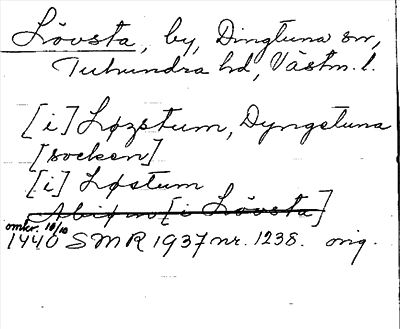 Lövsta, by, Dingtuna sn,
Tuhundra hd, Västm. l.
[i] Løzstum, Dyngetuna
[socken]
[i] Løstum
[i Lövsta]
omkr. 10/10
1440 SMR 1937 nr. 1238. orig.